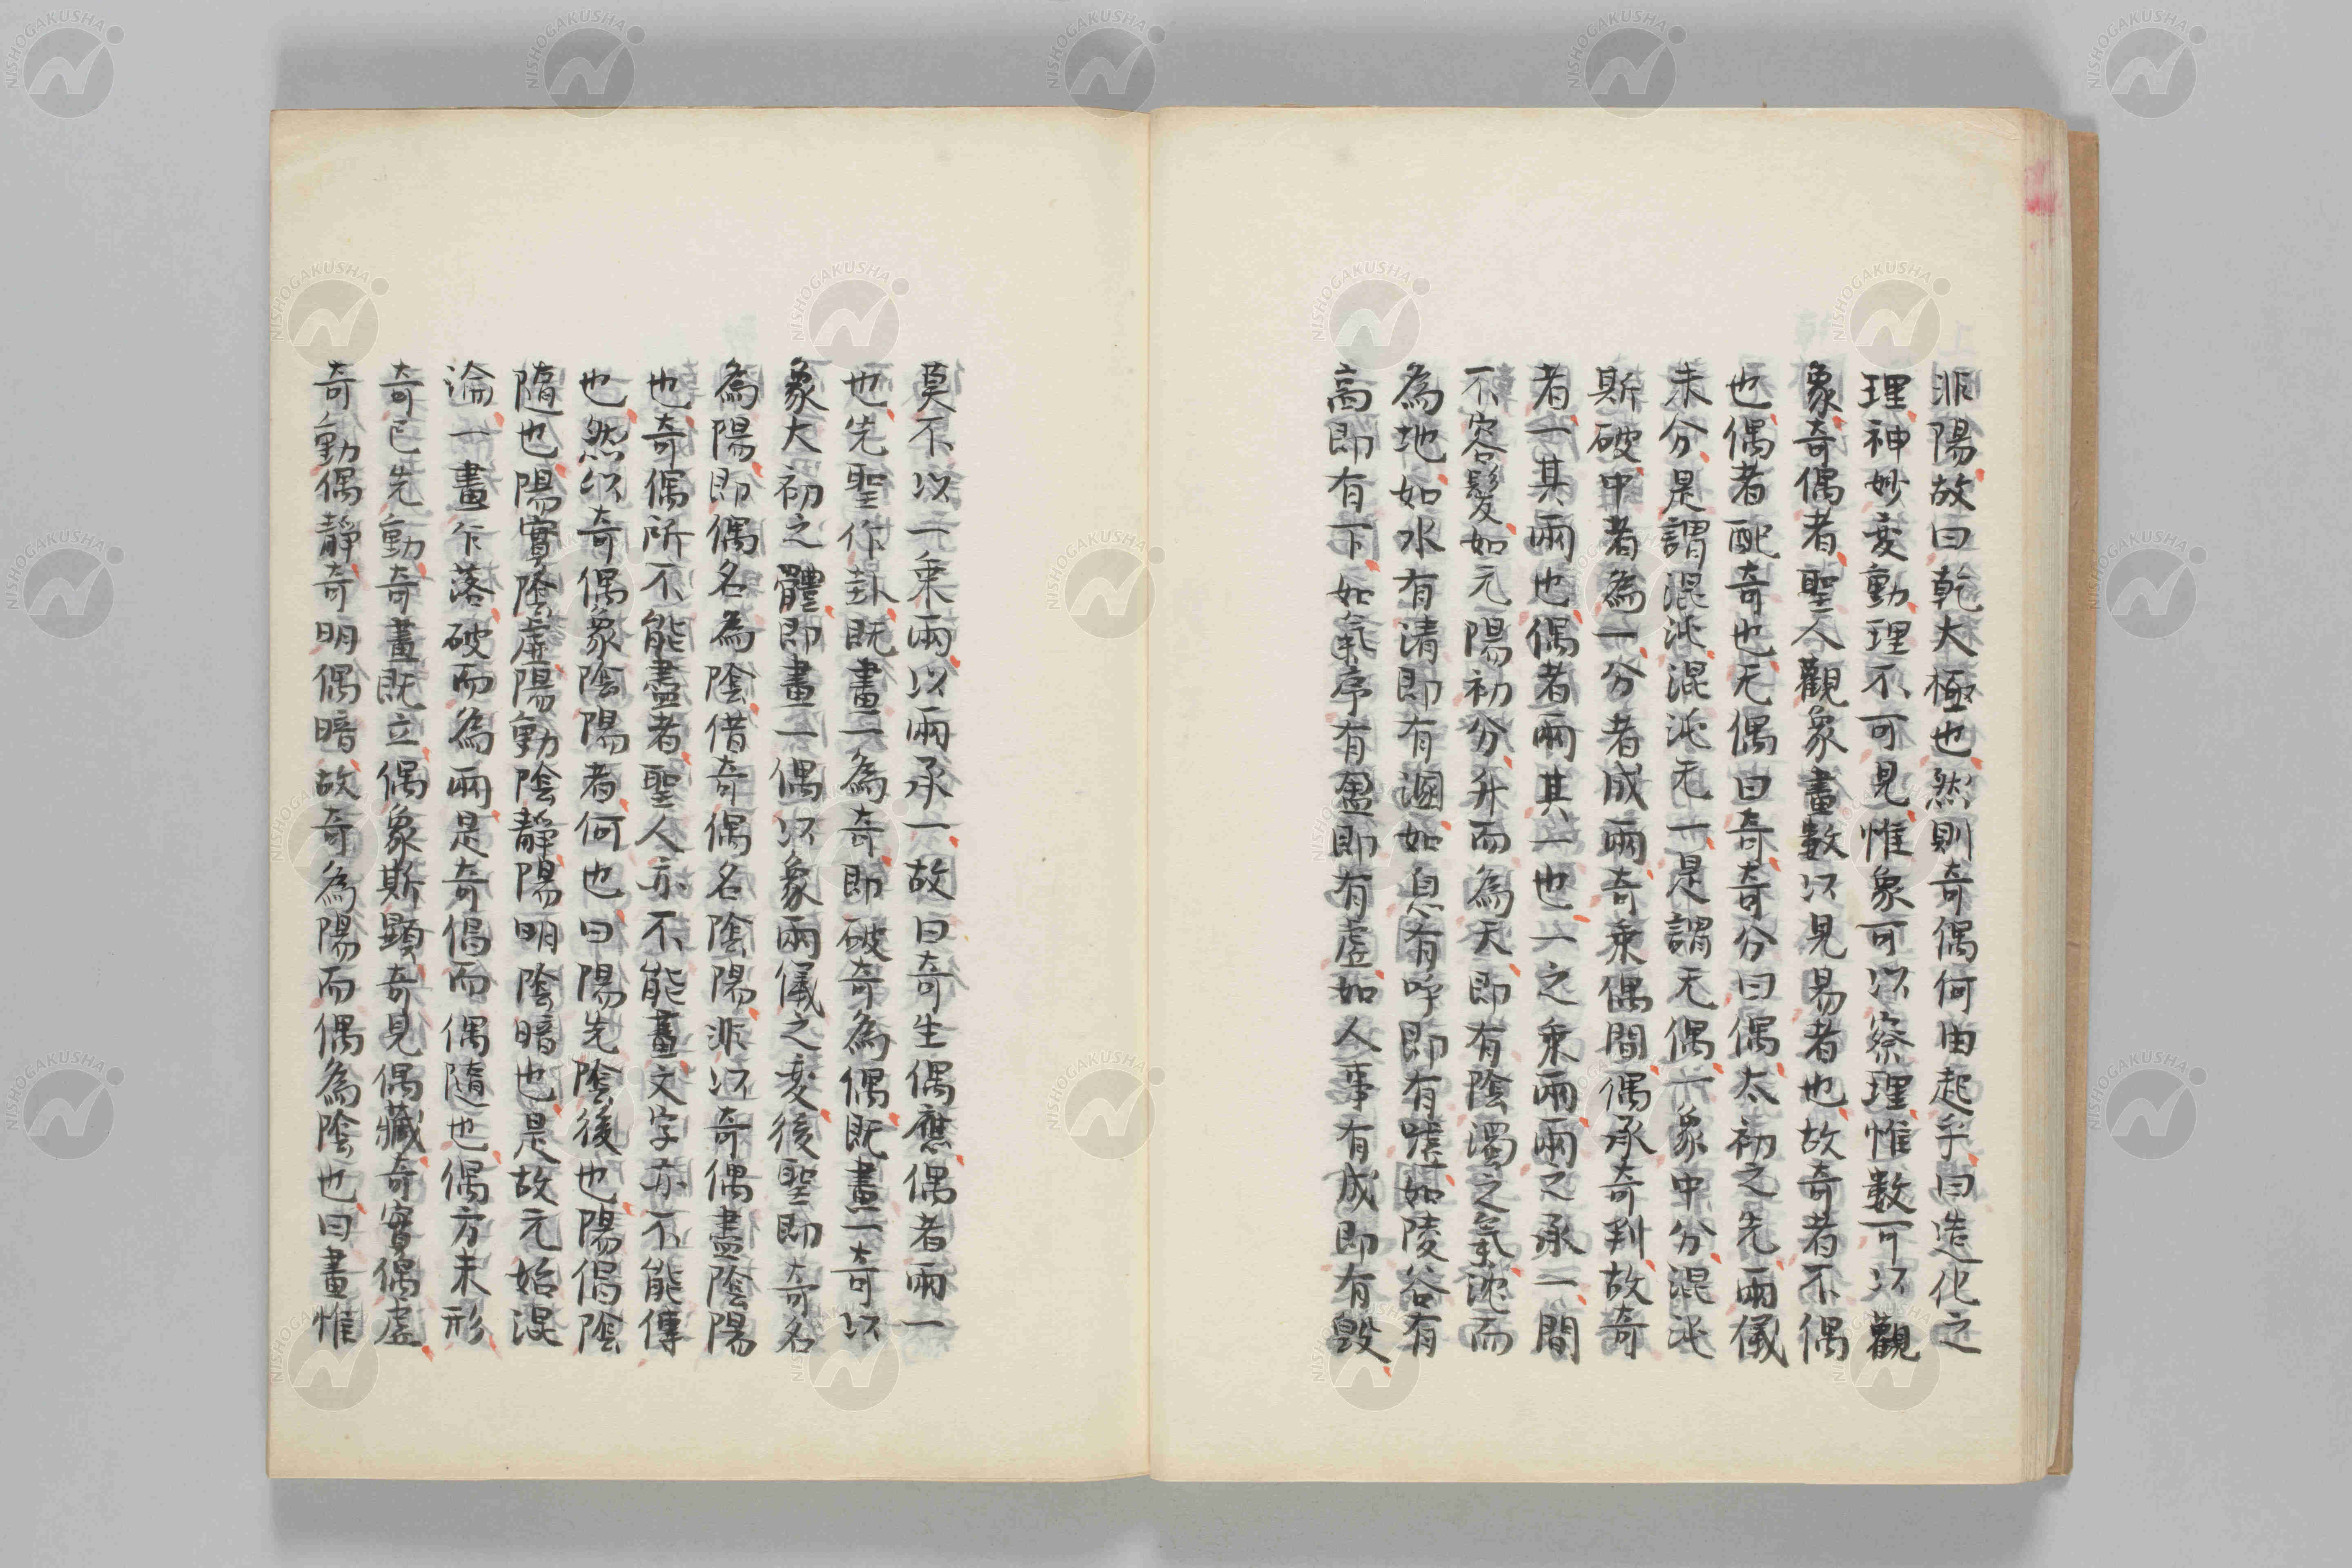 非陽故曰乾大極也然則奇偶何由起乎曰造化之
理神妙変動理不可見惟象可以察理惟數可以觀
象奇偶者聖人觀象畫數以見易者也故奇者不偶
也偶者配奇也无偶曰奇奇分曰偶太初之先兩儀
未分是謂混沌混沌无一是謂无偶一象中分混沌
斯破中者為一分者成兩奇乘偶間偶承奇判故奇
者一其兩也偶者兩其一也一之乘兩兩之承一間
不容髮如元陽初分升而為天即有陰濁之氣沈而
為地如水有清即有溷如息有呼即有噓如陵谷有
高即有下如氣序有盈即有虚如人事有成即有毀
莫不以一乘兩以兩承一故曰奇生偶應偶者兩一
也先聖作卦既畫一為奇即破奇為偶既畫一奇以
象大初之體即畫一偶以象兩儀之変後聖即奇名
為陽即偶名為陰借奇偶名陰陽非以奇偶盡陰陽
也奇偶所不能盡者聖人亦不能畫文字亦不能傳
也然以奇偶象陰陽者何也曰陽先陰後也陽倡陰
隨也陽實陰虚陽動陰靜陽明陰暗也是故元始混
淪一畫乍落破而為兩是奇倡而偶隨也偶方未形
奇已先動奇畫既立偶象斯顕奇見偶藏奇實偶虚
奇動偶靜奇明偶暗故奇為陽而偶為陰也曰畫惟
NISHOGAKUSHA